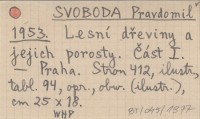 SVOBODA Pravdomil
1953. Lesní dřeviny a
jejich porosty. Část I.
— Praha. Stron 412, ilustr.,
tabl. 94, opr., obw. (ilustr.),
cm 25 x 18.
WHP